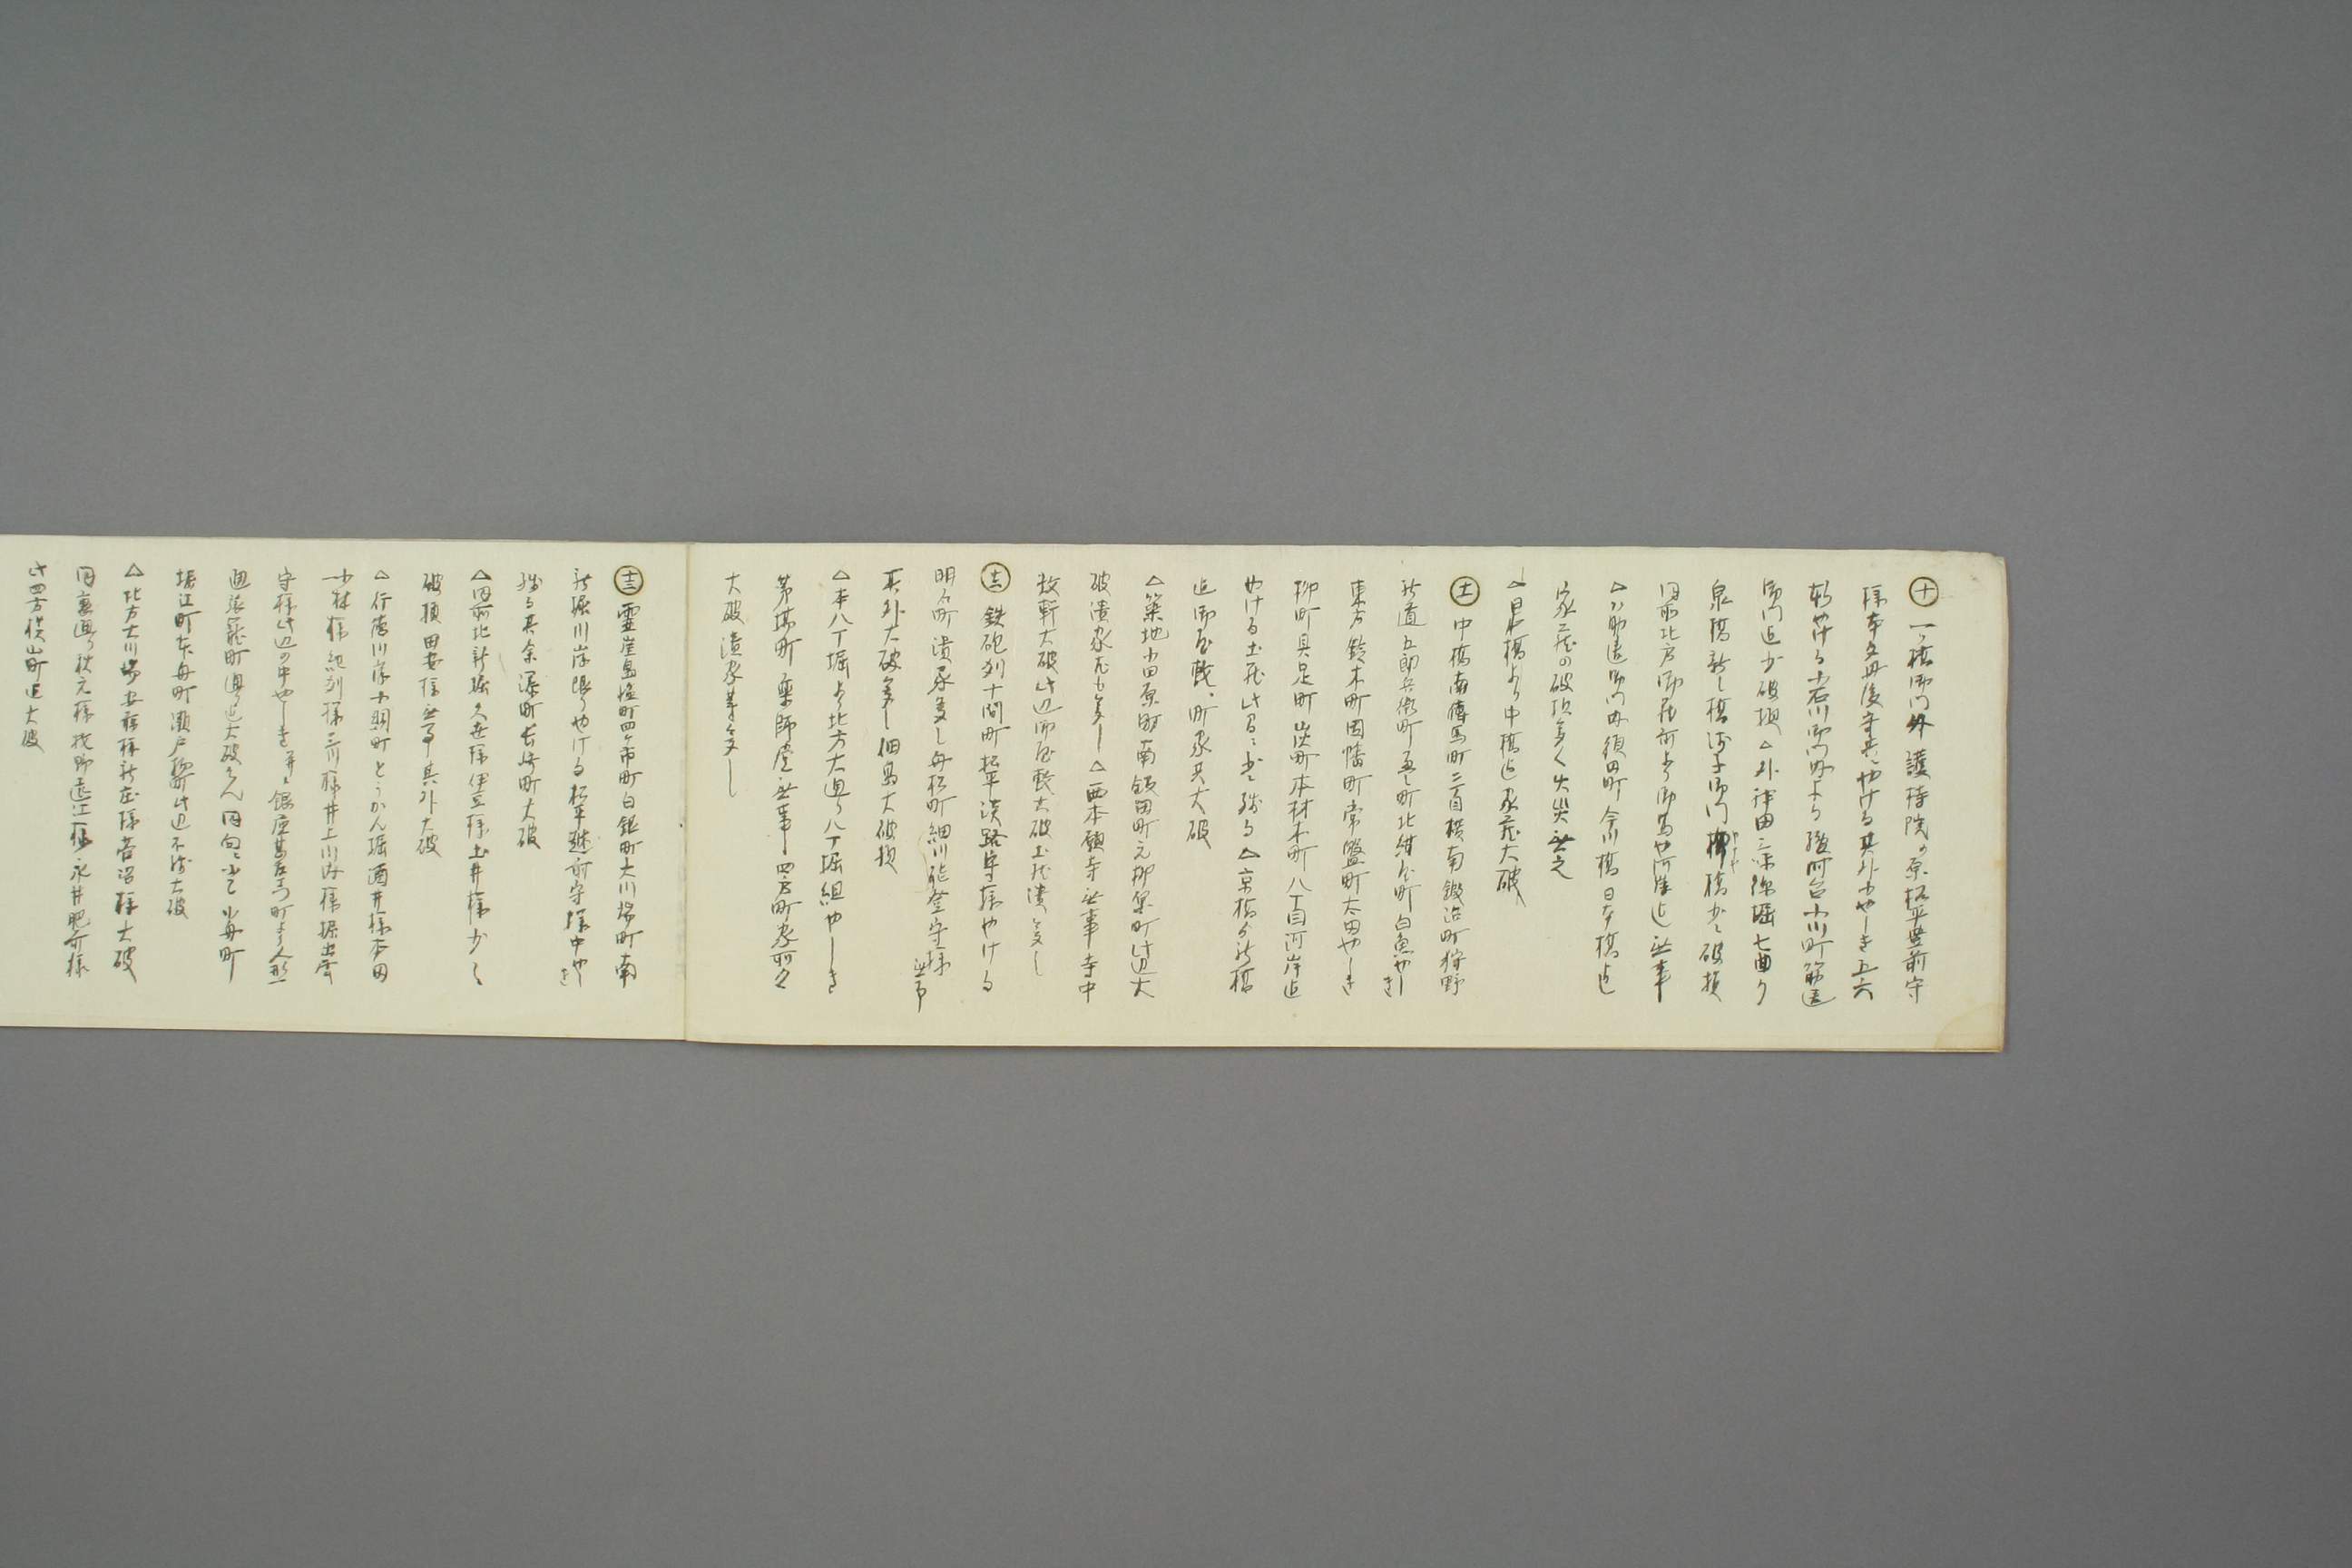 ㊉一ツ橋御門外護持院ヶ原松平豊前守
様本多丹後守様やける其外小やしき五六
軒やける小石川御門内より駿河台小川町筋違
御門迄少破損△外神田三味線堀七曲り
泉橋新し橋浅草御門柳橋少々破損
同所北方御蔵前より御馬や河岸迄無事
△筋違御門内須田町今川橋日本橋迄
家蔵の破損多く出火無之
△日本橋より中橋迄家蔵大破
⑪中橋南傳馬町二丁目横南鍛冶町狩野
新道五郎兵衛町畳町北紺屋町白魚やしき
東方鈴木町因幡町常盤町太田やしき
柳町具足町炭町本材木町八丁目河岸迄
やける土蔵此日ニ少々残る△京橋より新橋
迄御屋敷町家共大破
△築地小田原町南飯田町元柳原町此辺大
破潰家尤も多し△西本願寺無事寺中
数軒大破此辺御屋敷大破土蔵潰多し
⑫鉄砲刕十間町松平淡路守様やける
明石町潰家多し舟松町細川能登守様無事
其外大破多し佃島大破損
△本八丁堀より北方大通り八丁堀組やしき
茅場町薬師堂無事四方町家所々
大破潰家等多し
⑬霊岸島塩町四日市町白銀町大川端町南
新堀川岸限りやける松平越前守様中やしき
残る其余濱町長崎町大破
△同所北新堀久世様伊豆様土井様少々
破損田安様無事其外大破
△行徳川岸小網町とうかん堀酒井様本田
小林様紀刕様三川様井上川内様堀出雲
守様此辺の中やしき并ニ銀座甚左衛門町より人形
堀江町本舟町瀬戸物町此辺不残大破
△北方大川端安藤様新庄様菅沼様大破
同裏通り秋元様牧野遠江様永井肥前様
此四方横山町迄大破